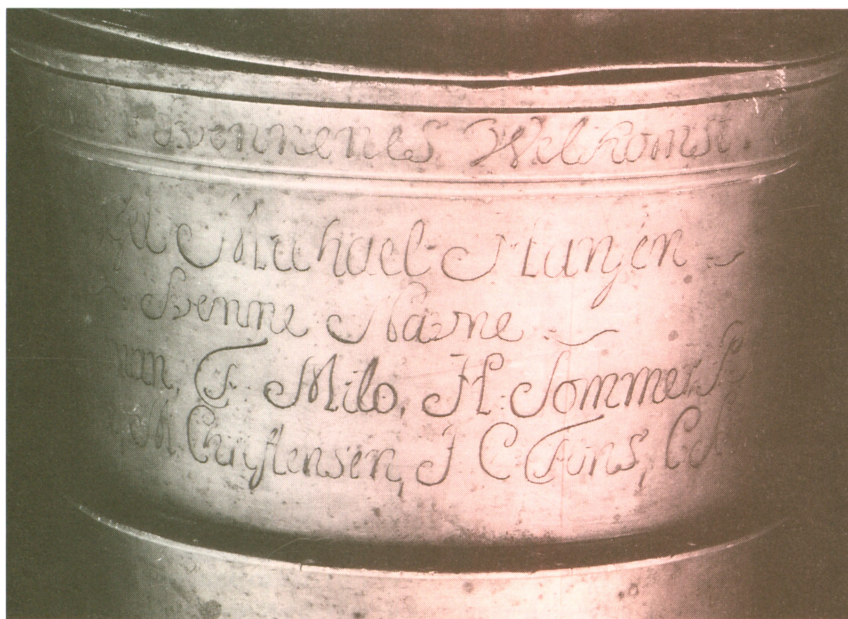 Svennenes Welkomst.
Michael Hansen
Svenne Navne
F. Milo, H. Sommer
M. Christensen, J C Fons,